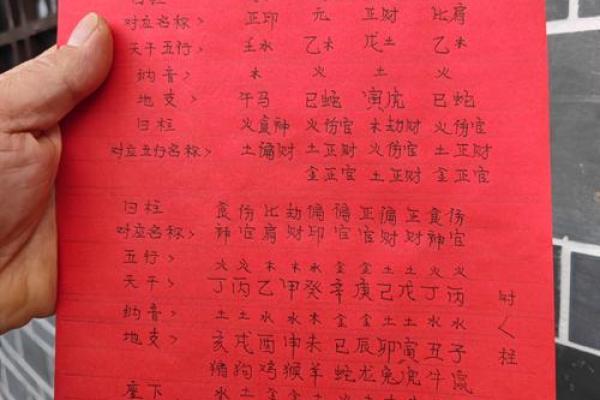 日柱
对应名称> 正印 元 正财 比肩
天干五行> 壬水 乙木 戊土 乙木
纳音> 木 火 土 火
地支> 午马 巳蛇 寅虎 巳蛇
日柱 火食神 火伤官 木劫财 火伤官
对应五行名称> 土偏财 土正财 火伤官 土正财
金正官 土正财 金正官
日柱 食 伤 比 劫 偏 偏 正 偏 正 食 伤
对应名称> 神 官 肩 财 印 官 官 财 财 神 官
五行> 火 火 木 木 水 金 金 土 土 火 火
天干> 丁 丙 乙 甲 癸 辛 庚 己 戊 丁 丙
纳音> 土 土 水 水 木 金 金 土 土 水 水
地支> 亥 戌 酉 申 未 巳 辰 卯 寅 丑 子
猪 狗 鸡 猴 羊 蛇 龙 兔 虎 牛 鼠
座下 水 土 金
时
柱